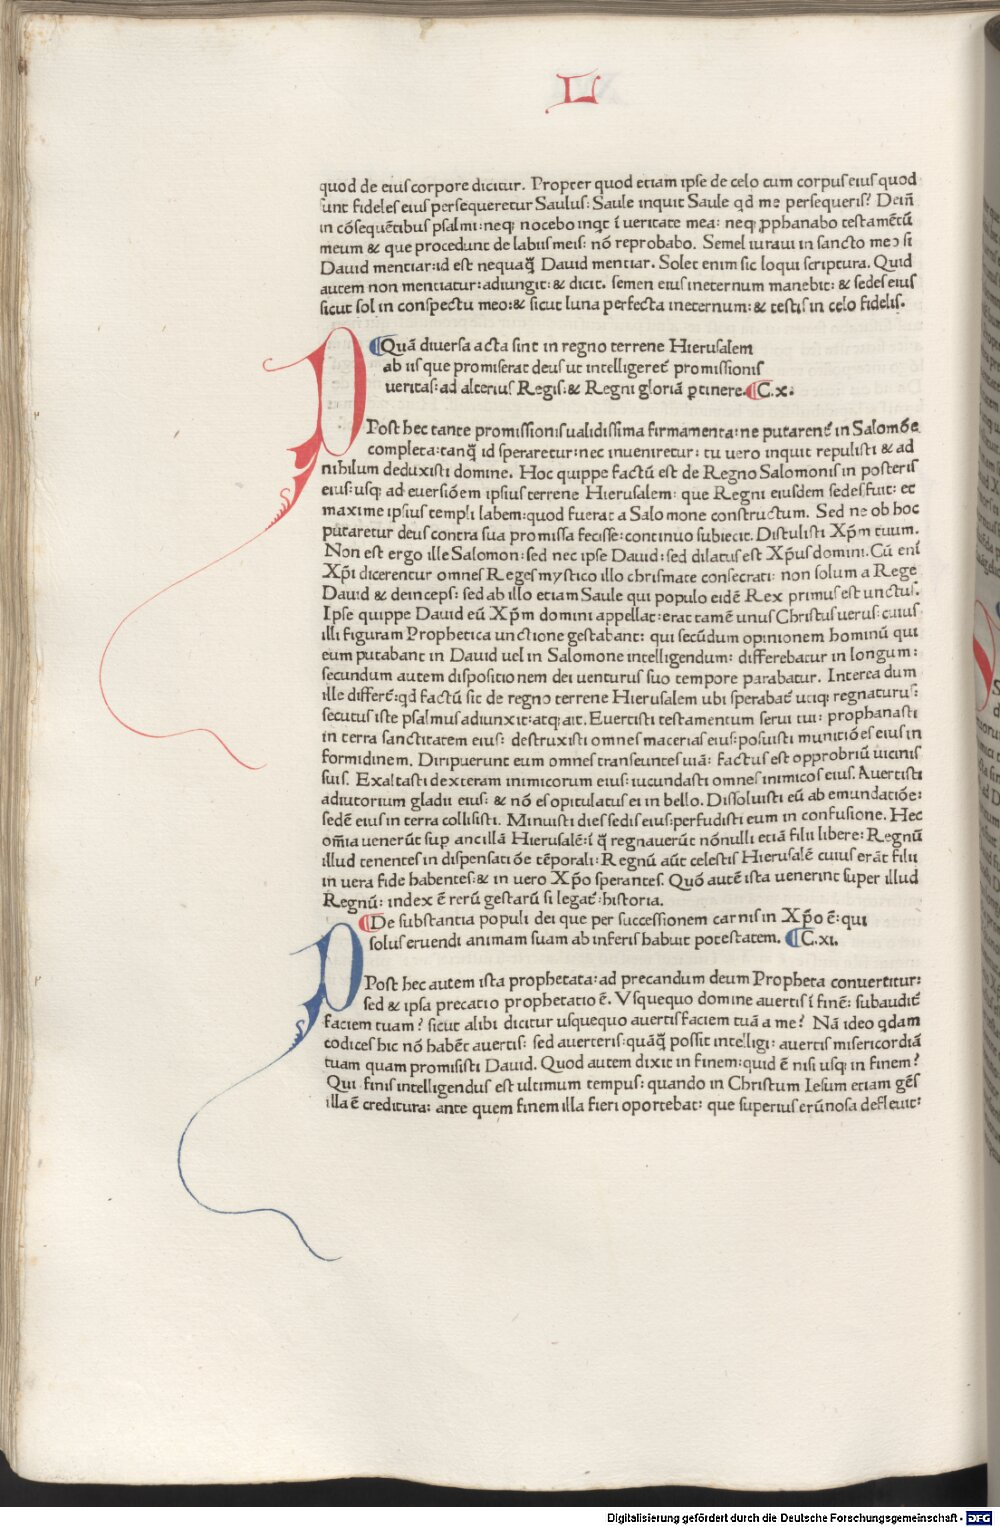 L
quod de eius corpore dicitur. Propter quod etiam ipse de celo cum corpus eius quod
sunt fideles eius persequeretur Saulus: Saule inquit Saule qd me persequeris? Deiñ
in cōsequētibus psalmi: neqꝫ nocebo inqt ī ueritate mea: neqꝫ ꝓphanabo testamētū
meum & que procedunt de labiis meis: nō reprobabo. Semel iuraui in sancto meo si
Dauid mentiar: id est nequaq̃ Dauid mentiar. Solet enim sic loqui scriptura. Quid
autem non mentiatur: adiungit: & dicit. semen eius ineternum manebit: & sedes eius
sicut sol in conspectu meo: & sicut luna perfecta ineternum: & testis in celo fidelis.
Quā diuersa acta sint in regno terrene Hierusalem
ab iis que promiserat deus ut intelligeret̄ promissionis
ueritas: ad alterius Regis: & Regni gloriā ꝑtinere. C.x.
P Post hec tante promissionis ualidissima firmamenta: ne putarent̄ in Salomōe
completa: tanq̃ id speraretur: nec inueniretur: tu uero inquit repulisti & ad
nihilum deduxisti domine. Hoc quippe factū est de Regno Salomonis in posteris
eius: usqꝫ ad euersiōem ipsius terrene Hierusalem: que Regni eiusdem sedes fuit: et
maxime ipsius templi labem: quod fuerat a Salomone constructum. Sed ne ob hoc
putaretur deus contra sua promissa fecisse: continuo subiecit. Distulisti Xp̄m tuum.
Non est ergo ille Salomon: sed nec ipse Dauid: sed dilatus est Xp̄us domini. Cū eni
Xp̄i dicerentur omnes Reges mystico illo chrismate consecrati: non solum a Rege
Dauid & deinceps: sed ab illo etiam Saule qui populo eidē Rex primus est unctus.
Ipse quippe Dauid eū Xp̄m domini appellat: erat tamē unus Christus uerus: cuius
illi figuram Prophetica unctione gestabant: qui secūdum opinionem hominū qui
eum putabant in Dauid uel in Salomone intelligendum: differebatur in longum:
secundum autem dispositionem dei uenturus suo tempore parabatur. Interea dum
ille differt̄: qd factū sit de regno terrene Hierusalem ubi sperabat̄ utiqꝫ regnaturus:
secutus iste psalmus adiunxit: atqꝫ ait. Euertisti testamentum serui tui: prophanasti
in terra sanctitatem eius: destruxisti omnes macerias eius: posuisti munitiōes eius in
formidinem. Diripuerunt eum omnes transeuntes uiā: factus est opprobriū uicinis
suis. Exaltasti dexteram inimicorum eius: iucundasti omnes inimicos eius. Auertisti
adiutorium gladii eius: & nō es opitulatus ei in bello. Dissoluisti eū ab emundatiōe:
sedē eius in terra collisisti. Minuisti dies sedis eius: perfudisti eum in confusione. Hec
om̄ia uenerūt sup ancillā Hierusalē: ī q̃ regnauerūt nōnulli etiā filii libere: Regnū
illud tenentes in dispensatiōe tēporali: Regnū aūt celestis Hierusalē cuius erāt filii
in uera fide habentes: & in uero Xp̄o sperantes. Quō autē ista uenerint super illud
Regnū: index ē rerū gestarū si legat̄: historia.
De substantia populi dei que per successionem carnis in Xp̄o ē: qui
solus eruendi animam suam ab inferis habuit potestatem. C.xi.
P Post hec autem ista prophetata: ad precandum deum Propheta conuertitur:
sed & ipsa precatio prophetatio ē. Vsquequo domine auertis ī finē: subaudit̄
faciem tuam? sicut alibi dicitur usquequo auertis faciem tuā a me? Nā ideo qdam
codices hic nō habēt auertis: sed auerteris: quāq̃ possit intelligi: auertis misericordiā
tuam quam promisisti Dauid. Quod autem dixit in finem: quid ē nisi usqꝫ in finem?
Qui finis intelligendus est ultimum tempus: quando in Christum Iesum etiam gēs
illa ē creditura: ante quem finem illa fieri oportebat: que superius erūnosa defleuit:
Digitalisierung gefördert durch die Deutsche Forschungsgemeinschaft - DFG